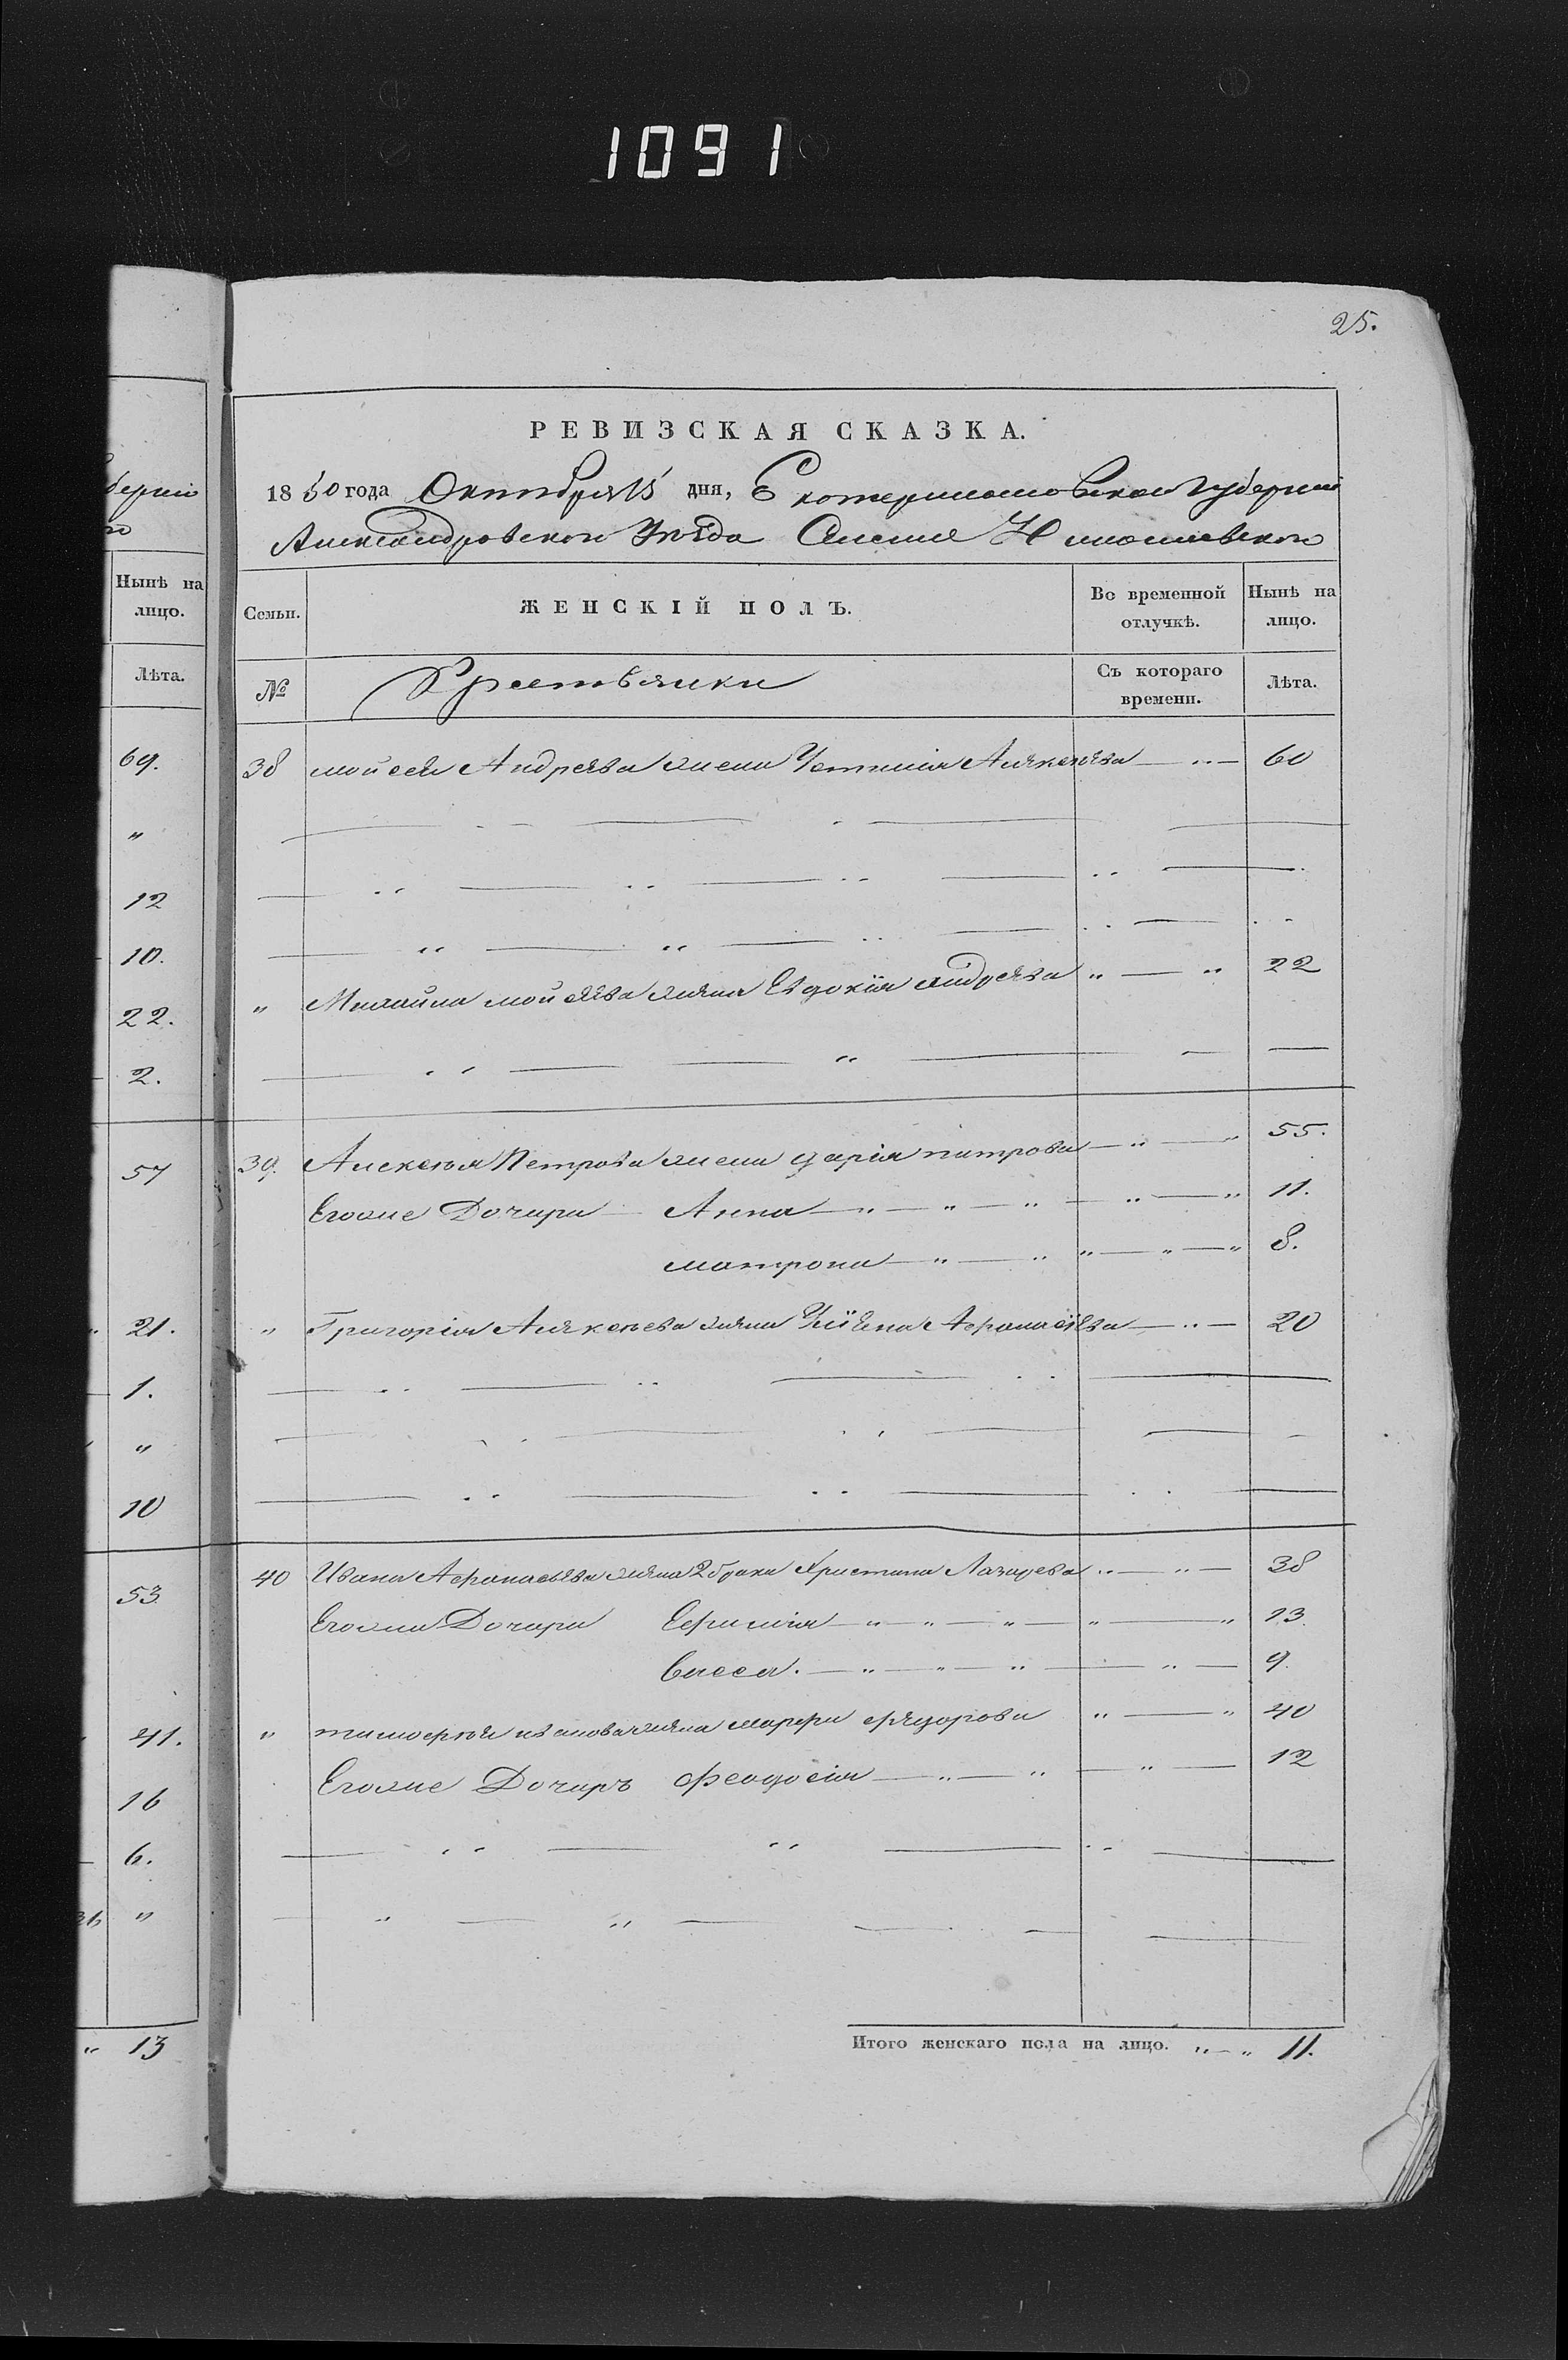 1091
25.
РЕВИЗСКАЯ СКАЗКА.
1850 года Октября 15 дня, Екатеринославской Губерніи
Александровскаго Уѣзда Селенія Николаевскаго
Семьи. ЖЕНСКІЙ ПОЛЪ. Во временной отлучкѣ. Нынѣ на лицо.
№ Крестьянки Съ котораго времени. Лѣта.
38 Мойсея Андреева жена Устинія Алексеева — „ — 60
„ Михайла Мойсеева жена Евдокія Андреева „ — „ 22
39. Алексея Петрова жена Дарія Петрова — „ — „ 55.
Егоже Дочери Анна — „ — „ — „ — „ — „ 11.
Матрона — „ — „ „ — „ — „ 8.
„ Григорія Алексеева жена Афанасіева — „ — 20
40 Ивана Афанасьева жена 2 брака Христина Лазарева „ — „ — 38
Егоже Дочери Ефимія — „ — „ — „ — „ — „ 13.
Васса. — „ — „ — „ — „ — 9.
„ Тимофея Иванова жена Марфа Федорова „ — „ 40
Егоже Дочерь Феодосія — „ — „ — „ — 12
Итого женскаго пола на лицо. „ — „ 11.
берніи
Нынѣ на лицо.
Лѣта.
69.
„
12
10.
22.
2.
57
„ 21.
1.
„
10
53
41.
16
6.
„
„ 13